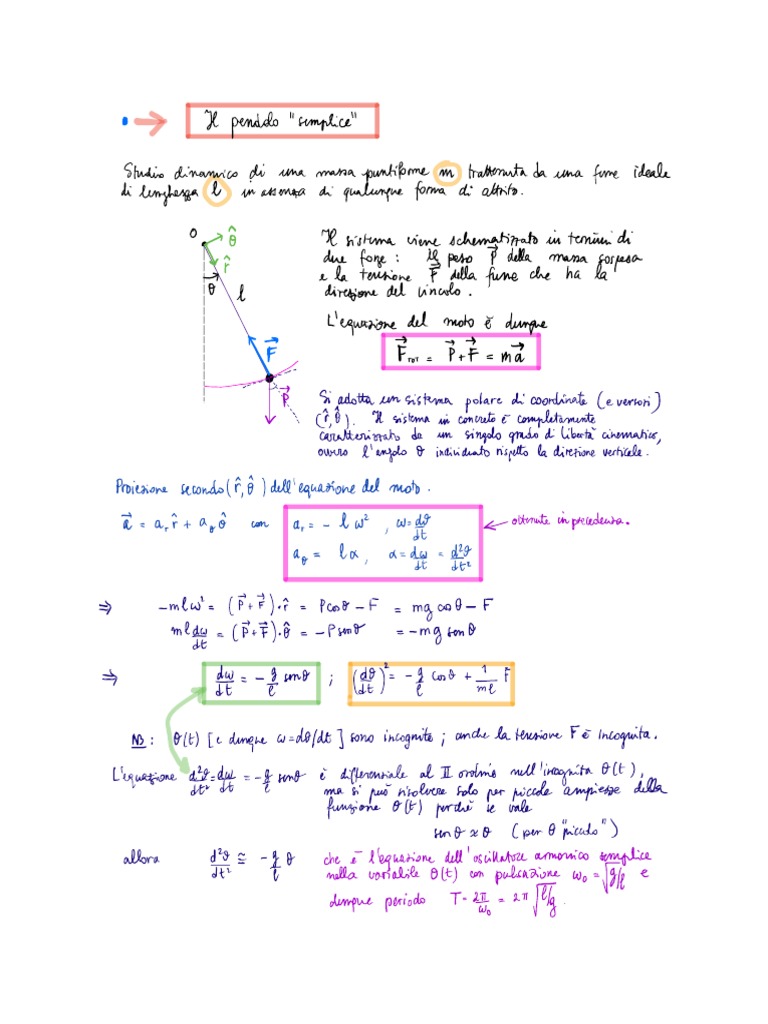 Il pendolo "semplice"
Studio dinamico di una massa puntiforme m trattenuta da una fune ideale
di lunghezza l in assenza di qualunque forma di attrito.
O
θ̂
r̂
θ
l
F⃗
P⃗
Il sistema viene schematizzato in termini di
due forze : il peso P⃗ della massa sospesa
e la tensione F⃗ della fune che ha la
direzione del vincolo.
L'equazione del moto è dunque
F⃗_TOT = P⃗ + F⃗ = m a⃗
Si adotta un sistema polare di coordinate (e versori)
(r̂, θ̂). Il sistema in concreto è completamente
caratterizzato da un singolo grado di libertà cinematico,
ovvero l'angolo θ individuato rispetto la direzione verticale.
Proiezione secondo (r̂, θ̂) dell'equazione del moto.
a⃗ = a_r r̂ + a_θ θ̂ con a_r = - l ω² , ω = dθ/dt
a_θ = l α , α = dω/dt = d²θ/dt²
obtenute in precedenza.
⇒ -mlω² = (P⃗ + F⃗)·r̂ = P cosθ - F = mg cosθ - F
ml dω/dt = (P⃗ + F⃗)·θ̂ = -P senθ = -mg senθ
⇒ dω/dt = - g/l senθ ; (dθ/dt)² = - g/l cosθ + 1/ml F
NB : θ(t) [e dunque ω = dθ/dt] sono incognite ; anche la tensione F è incognita.
L'equazione d²θ/dt² = dω/dt = - g/l senθ è differenziale al II ordine nell'incognita θ(t),
ma si può risolvere solo per piccole ampiezze della
funzione θ(t) perché se vale
senθ ≈ θ (per θ "piccolo")
allora d²θ/dt² ≅ - g/l θ che è l'equazione dell'oscillatore armonico semplice
nella variabile θ(t) con pulsazione ω₀ = √g/l e
dunque periodo T = 2π/ω₀ = 2π √l/g .